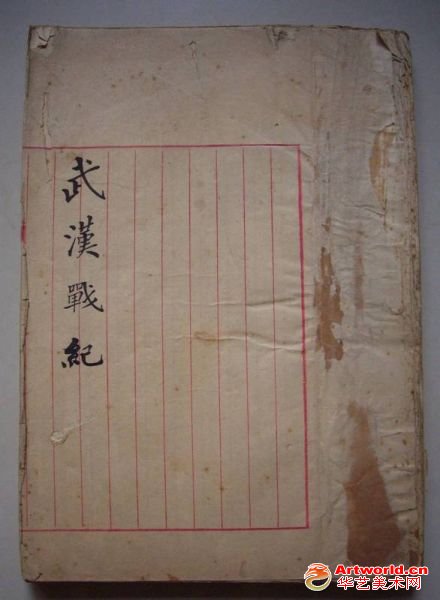 武漢戰紀
Artworld.cn
华艺美术网